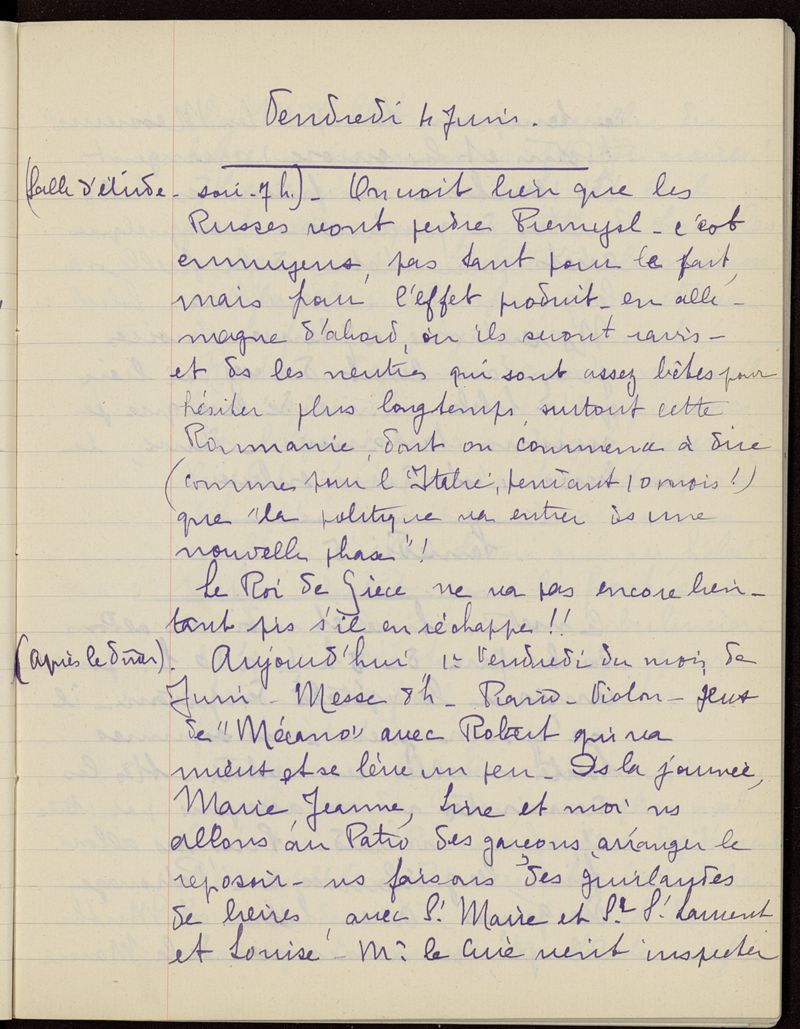 Vendredi 4 Juin.
(Salle d'étude - soir - 7 h.) - On voit bien que les
Russes vont perdre Premysl - c'est
ennuyeux, pas tant pour le fait,
mais pour l'effet produit - en alle-
magne d'abord, où ils seront ravis -
et ds les neutres qui sont assez bêtes pour
hésiter plus longtemps, surtout cette
Roumanie, dont on commence à dire
(comme pour l'Italie, pendant 10 mois !)
que "la politique va entrer ds une
nouvelle phase" !
Le Roi de Grèce ne va pas encore bien -
tant pis s'il en réchappe !!
(après le dîner). Aujourd'hui 1r Vendredi du mois de
Juin - Messe 8h - Piano - Violon - Jeux
de "Mécano" avec Robert qui va
mieux et se lève un peu - Ds la journée,
Marie, Jeanne, Line et moi ns
allons au Patro des garçons, arranger le
reposoir - ns faisons des guirlandes
de lierres, avec St Marie et Sr St Laurent
et Louise - Mr le Curé vient inspecter